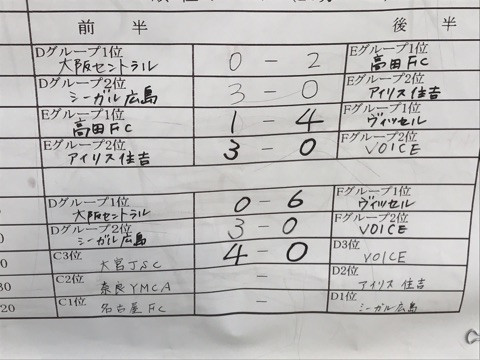 前 半 後 半
Dグループ1位 Eグループ1位
大阪セントラル 0 - 2 高田FC
Dグループ2位 Eグループ2位
シーガル広島 3 - 0 アイリス住吉
Eグループ1位 Fグループ1位
高田FC 1 - 4 ヴィッセル
Eグループ2位 Fグループ2位
アイリス住吉 3 - 0 VOICE
Dグループ1位 Fグループ1位
大阪セントラル 0 - 6 ヴィッセル
Dグループ2位 Fグループ2位
シーガル広島 3 - 0 VOICE
C3位 大宮JSC 4 - 0 D3位 VOICE
30 C2位 奈良YMCA - D2位 アイリス住吉
20 C1位 名古屋FC - D1位 シーガル広島